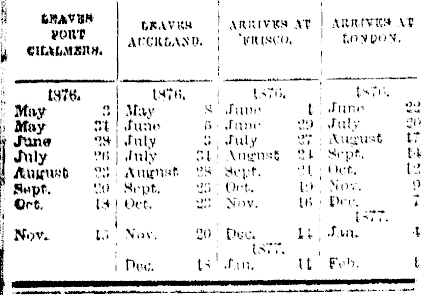 LEAVES PORT CHALMERS. LEAVES AUCKLAND. ARRIVES AT 'FRISCO. ARRIVES AT LONDON.
1876. 1876. 1876. 1876.
May 3 May 8 June 1 June 22
May 31 June 5 June 29 July 20
June 28 July 3 July 27 August 17
July 26 July 31 August 24 Sept. 14
August 23 August 28 Sept. 21 Oct. 12
Sept. 20 Sept. 25 Oct. 19 Nov. 9
Oct. 18 Oct. 23 Nov. 16 Dec. 7
1877.
Nov. 15 Nov. 20 Dec. 14 Jan. 4
1877.
Dec. 18 Jan. 11 Feb. 1